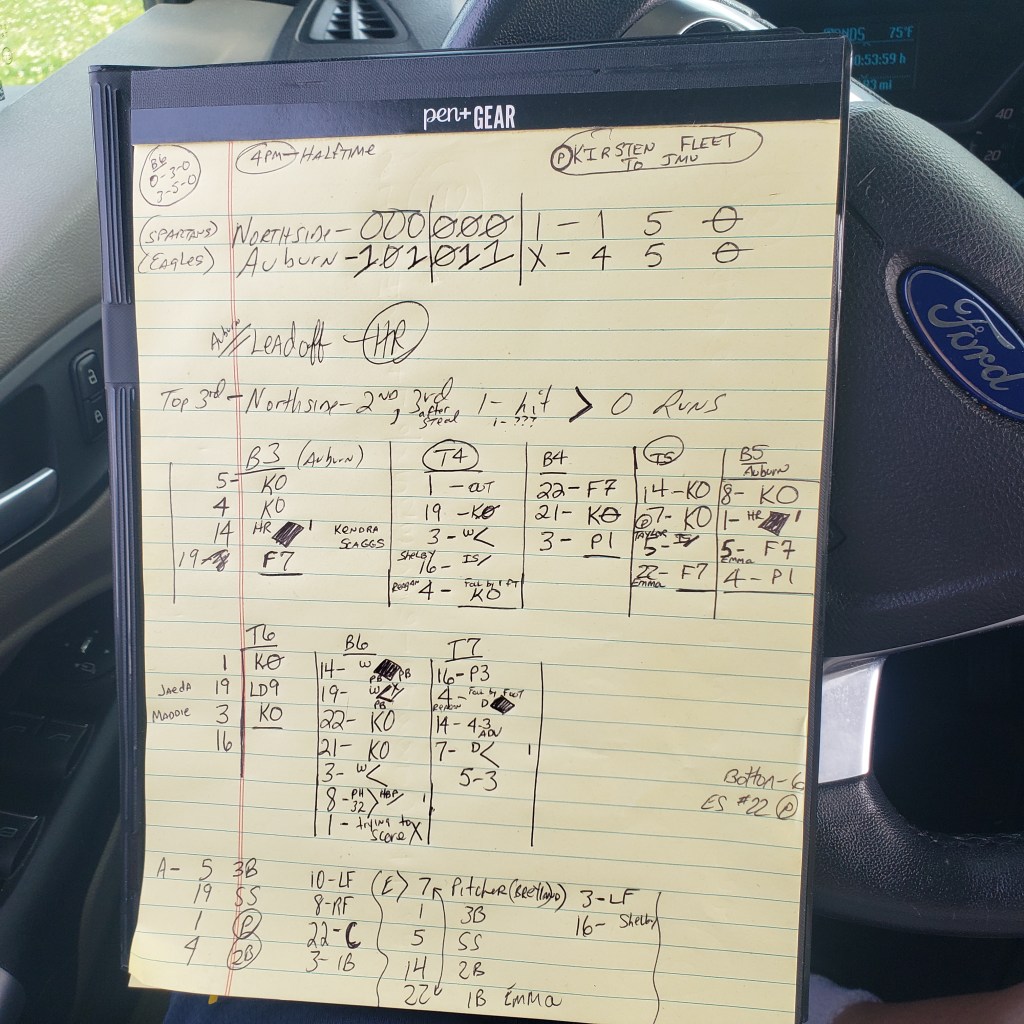 75°F
0:53:59 h
mi
40
20
pen+GEAR
Ford
B6
0-3-0
3-5-0
4PM-HALFTIME
P KIRSTEN FLEET
TO JMU
(SPARTANS) NORTHSIDE- 000|000|1 - 1 5 0
(EAGLES) AUBURN - 101|011|X - 4 5 0
Auburn Leadoff - HR
Top 3rd - Northside - 2ND, 3rd after steal 1- hit > 0 RUNS
1- ???
B3 (Auburn)
5- KO
4 KO
14 HR 1 KENDRA SCAGGS
19- F7
T4
1 - OUT
19 - KO
3 - W<
SHELBY 16- IS/
Reagan 4 - KO
B4
22- F7
21- KO
3 - P1
T5
14-KO
P 7- KO
TAYLOR 5- IS/
22- F7
EMMA
B5
Auburn
8- KO
1- HR 1
5- F7
EMMA
4 - P1
T6
1 KO
JAEDA 19 LD9
MADDIE 3 KO
16
B6
14- W PB PB
19- W
PB
22- KO
21- KO
3- W<
8- PH 32 > HBP/ 1
1- trying to score X
T7
16-P3
4- Foul by FOOT
REAGAN D
14- 4-3 ADV
7- D< 1
5-3
Bottom-6
ES #22 P
A- 5 3B
19 SS
1 P
4 2B
10-LF
8-RF
22-C
3-1B
(E) 7 Pitcher
1 3B
5 SS
14 2B
22 1B EMMA
3-LF
16- Shelby